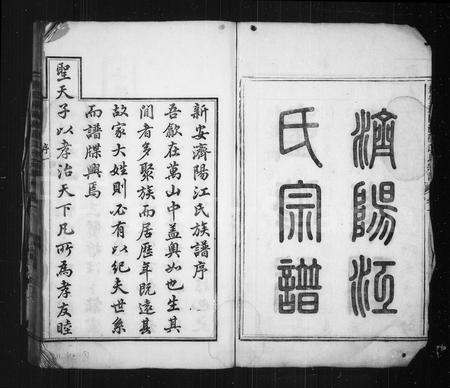 濟陽江
氏宗譜
新安濟陽江氏族譜序
吾歙在萬山中蓋奧如也生其
間者多聚族而居歷年既遠甚
故家大姓則必有以紀夫世系
而譜牒興焉
聖天子以孝治天下凡所為孝友睦
序